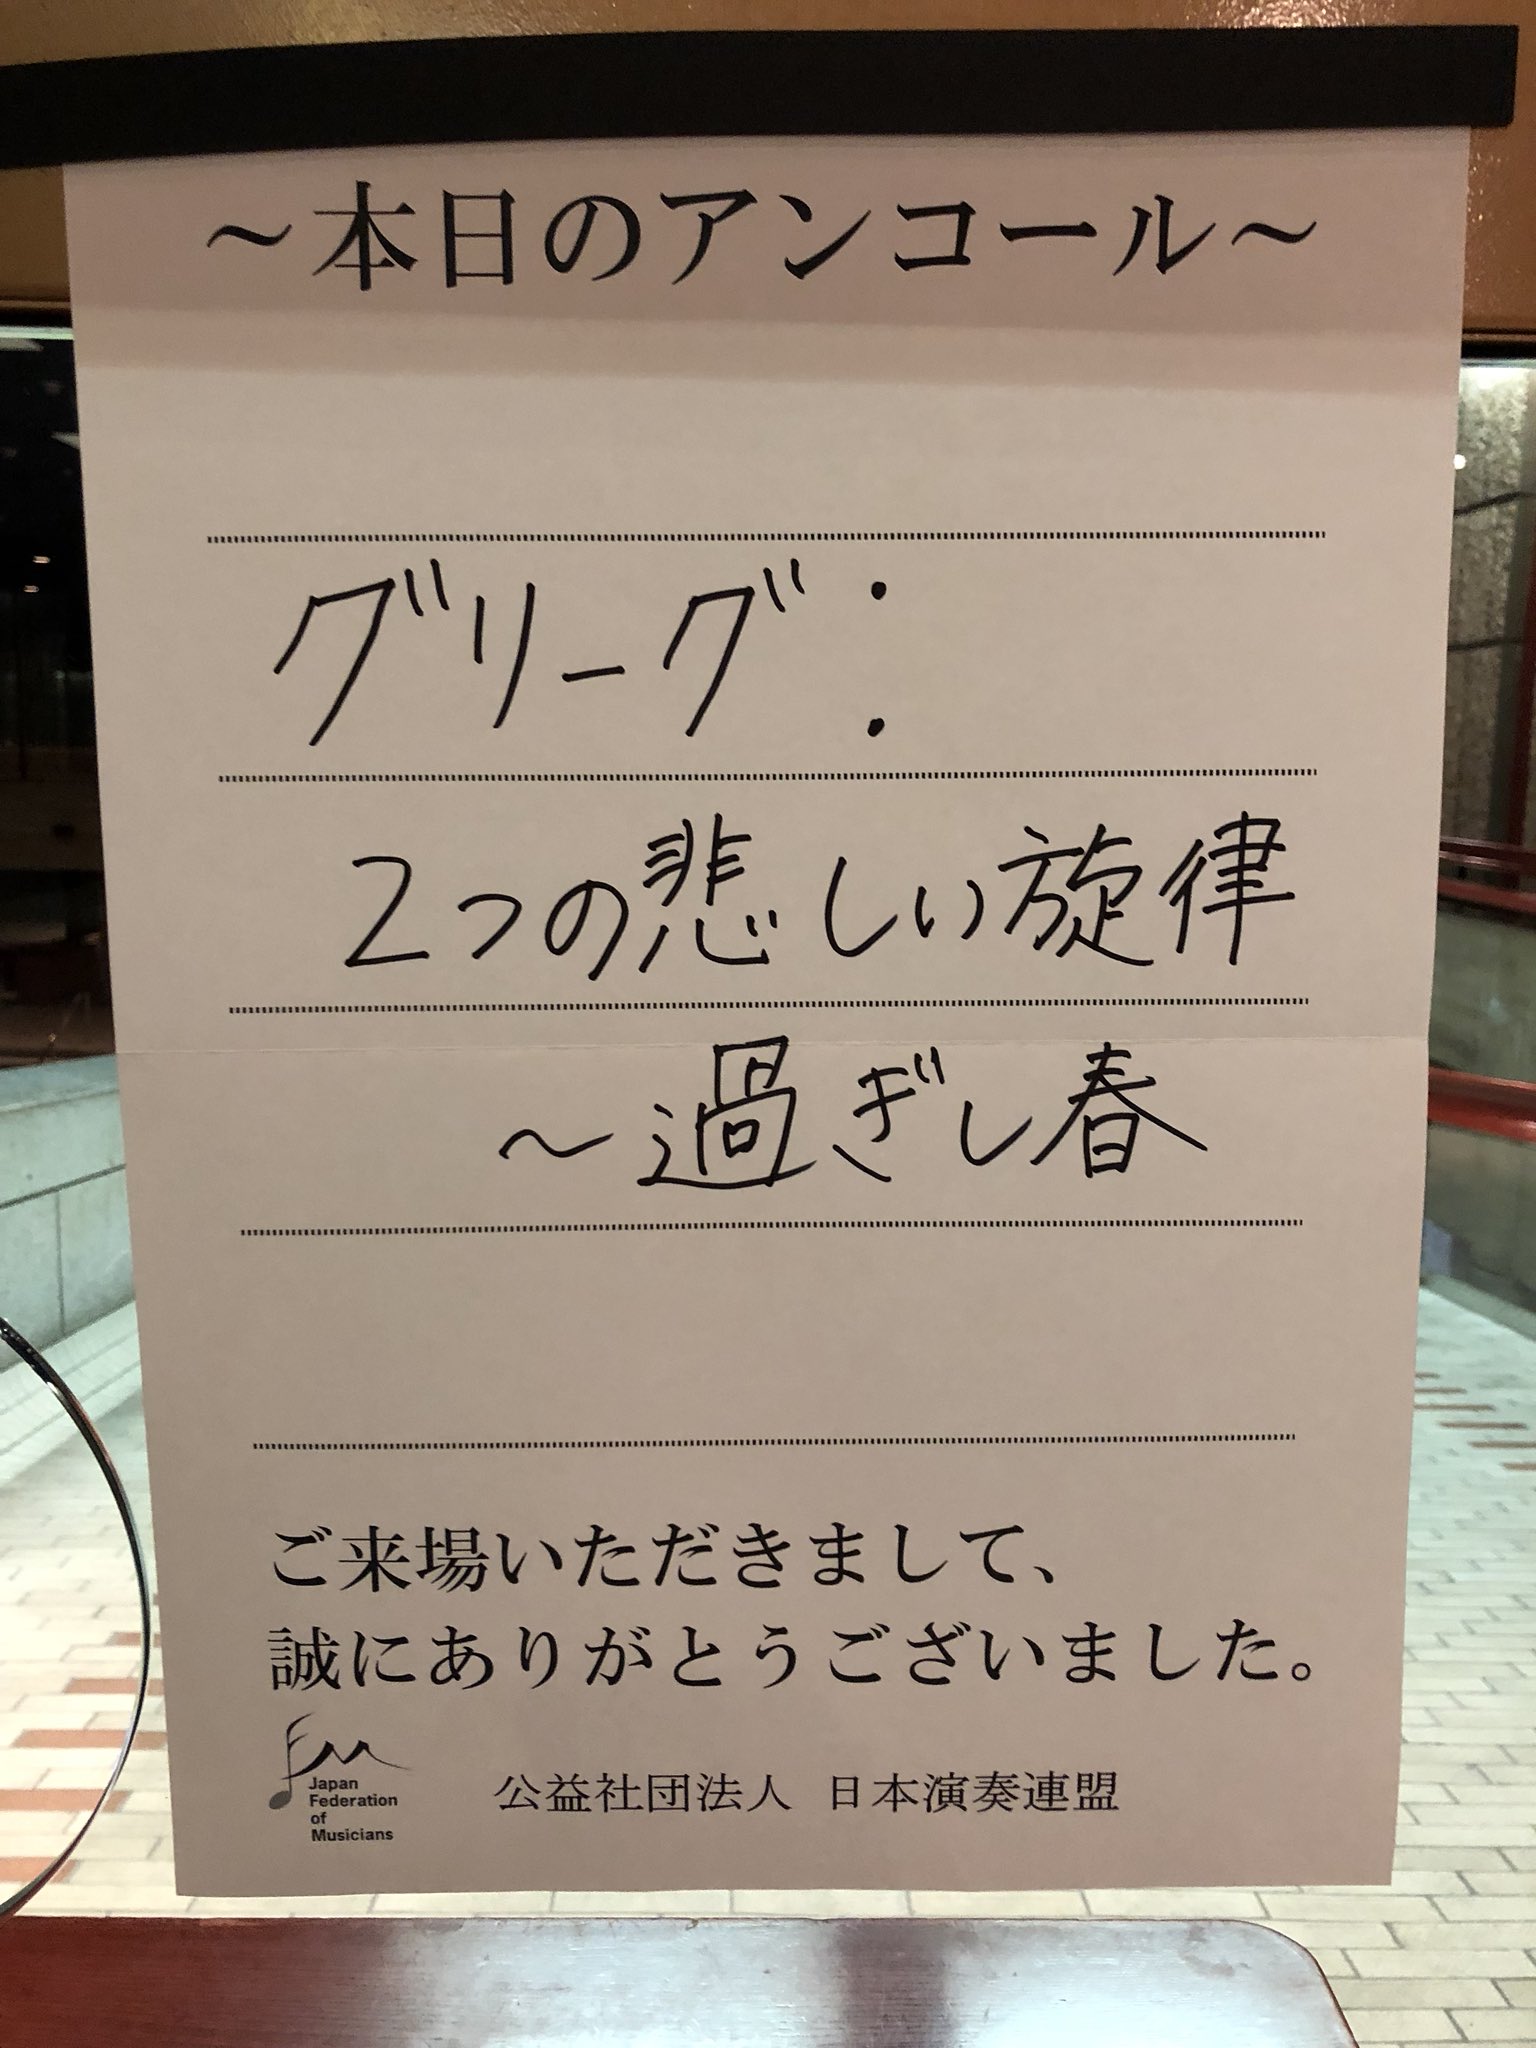 ～本日のアンコール～
グリーグ：
2つの悲しい旋律
～過ぎし春
ご来場いただきまして、
誠にありがとうございました。
Japan
Federation
of
Musicians
公益社団法人 日本演奏連盟